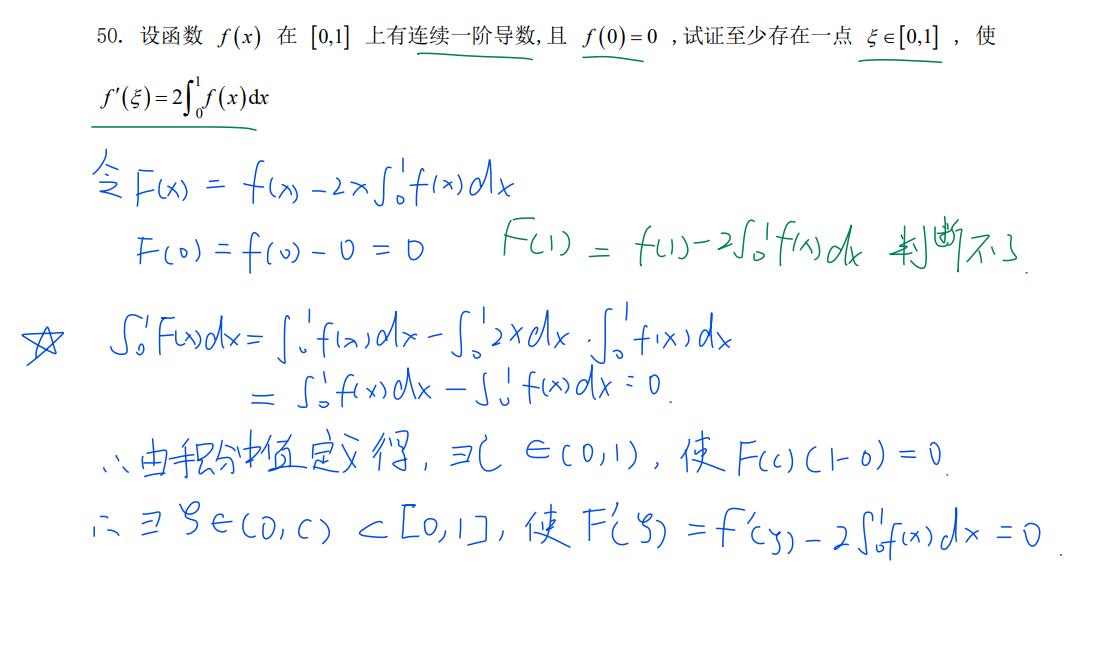 50. 设函数 f(x) 在 [0,1] 上有连续一阶导数,且 f(0)=0 ,试证至少存在一点 ξ∈[0,1] ，使
f′(ξ)=2∫₀¹f(x)dx
令 F(x) = f(x) - 2x∫₀¹f(x)dx
F(0) = f(0) - 0 = 0
F(1) = f(1) - 2∫₀¹f(x)dx 判断不了.
☆ ∫₀¹F(x)dx = ∫₀¹f(x)dx - ∫₀¹2xdx · ∫₀¹f(x)dx
= ∫₀¹f(x)dx - ∫₀¹f(x)dx = 0.
∴ 由积分中值定义得, ∃C ∈(0,1), 使 F(c)(1-0) = 0.
∴ ∃ ξ∈(0,c) ⊂ [0,1], 使 F′(ξ) = f′(ξ) - 2∫₀¹f(x)dx = 0.